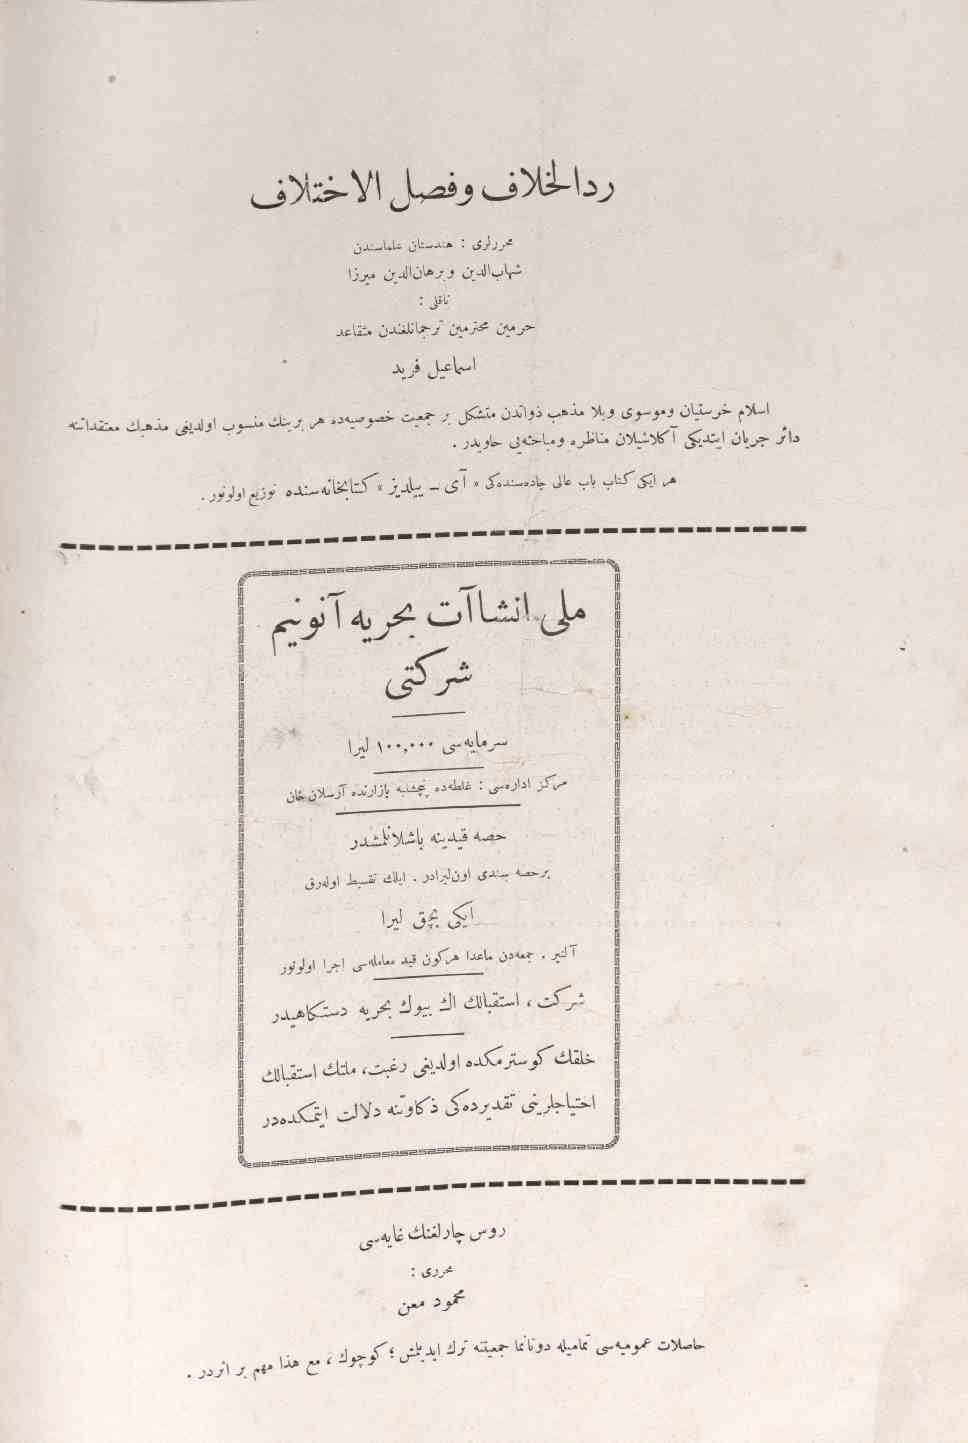 رد الخلاف وفصل الاختلاف
محررلری : هندستان علماسندن
شهاب‌الدین وبرهان‌الدین میرزا
ناقلی :
حرمین محترمین ترجمانلغندن متقاعد
اسماعیل فرید
اسلام خرستیان وموسوی وبلا مذهب ذواتدن متشکل بر جمعیت خصوصیه‌ده هر برینك منسوب اولدیغی مذهبك معتقداتنه
دائر جریان ایتدیکی آکلاشیلان مناظره ومباحثه‌یی حاویدر .
هر ایکی کتاب باب عالی جاده‌سنده‌کی « آی ـ ییلدیز » کتابخانه‌سنده توزیع اولونور .
ملی انشاآت بحریه آنونیم
شرکتی
سرمایه‌سی ١٠٠,٠٠٠ لیرا
مرکز اداره‌سی : غلطه‌ده پنچشنبه بازارنده آرسلان خان
حصه قیدینه باشلانلمشدر
برحصه سندی اون‌لیرادر . ایلك تقسیط اوله‌رق
ایکی بچق لیرا
آلنیر . جمعه‌دن ماعدا هرکون قید معامله‌سی اجرا اولونور
شرکت ، استقبالك اك بیوك بحریه دستکاهیدر
خلقك کوسترمکده اولدیغی رغبت ، ملتك استقبالك
احتیاجلرینی تقدیرده‌کی ذکاوتنه دلالت ایتمکده‌در
روس چارلغنك غایه‌سی
محرری :
محمود معن
حاصلات عمومیه‌سی تمامیله دونانما جمعیتنه ترك ایدیلمش ؛ کوچوك ، مع هذا مهم بر اثردر .